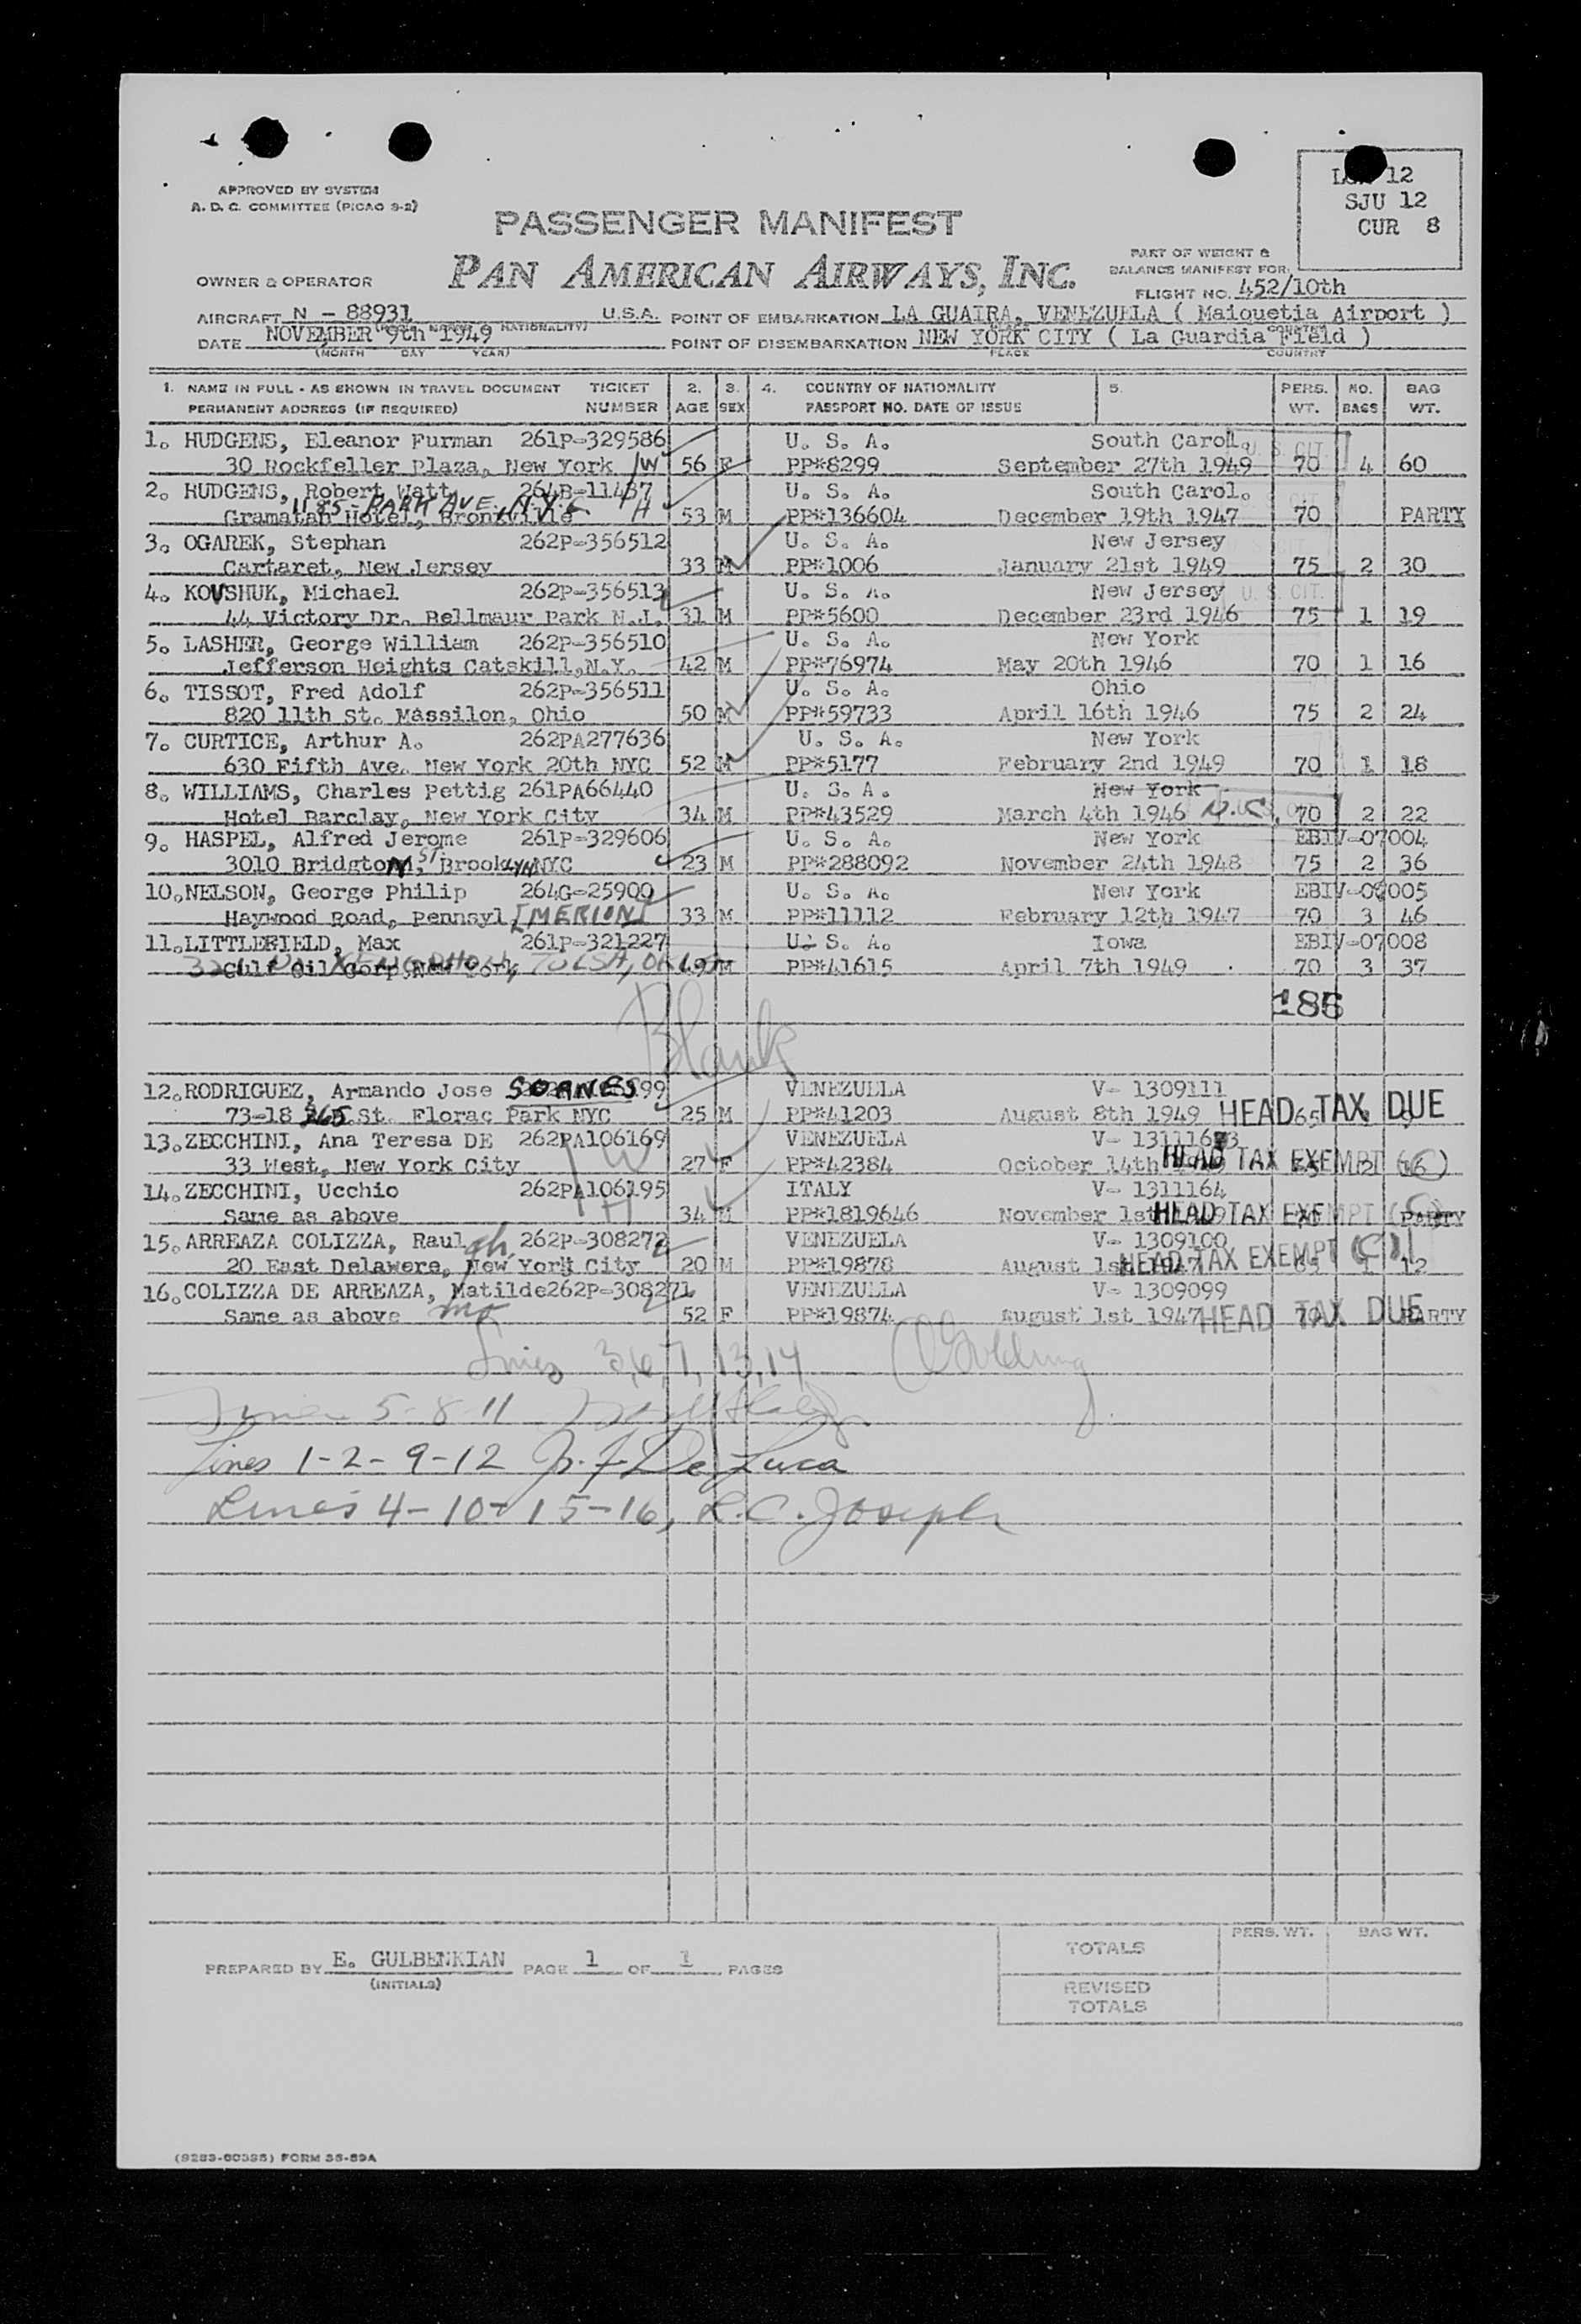 APPROVED BY SYSTEM
A. D. C. COMMITTEE (PICAO 9-2)
12
SJU 12
CUR 8
PASSENGER MANIFEST
PART OF WEIGHT &
BALANCE MANIFEST FOR
OWNER & OPERATOR PAN AMERICAN AIRWAYS, INC. FLIGHT NO. 452/10th
AIRCRAFT N - 88931 U.S.A. POINT OF EMBARKATION LA GUAIRA, VENEZUELA ( Maiquetia Airport )
DATE NOVEMBER 9th 1949 POINT OF DISEMBARKATION NEW YORK CITY ( La Guardia Field )
(MONTH DAY YEAR) PLACE COUNTRY
1. NAME IN FULL - AS SHOWN IN TRAVEL DOCUMENT TICKET 2. 3. 4. COUNTRY OF NATIONALITY 5. PERS. NO. BAG
PERMANENT ADDRESS (IF REQUIRED) NUMBER AGE SEX PASSPORT NO. DATE OF ISSUE WT. BAGS WT.
1. HUDGENS, Eleanor Furman 261P-329586 U. S. A. South Carol. U. S. CIT.
30 Rockfeller Plaza, New York W 56 F PP*8299 September 27th 1949 70 4 60
2. HUDGENS, Robert Watt 264B-11437 U. S. A. South Carol. CIT.
1185 - PARK AVE, N.Y.C
Gramatan Hotel, Bronxville H 53 M PP*136604 December 19th 1947 70 PARTY
3. OGAREK, Stephan 262P-356512 U. S. A. New Jersey
Cartaret, New Jersey 33 M PP*1006 January 21st 1949 75 2 30
4. KOVSHUK, Michael 262P-356513 U. S. A. New Jersey U. S. CIT.
44 Victory Dr. Bellmaur Park N.J. 31 M PP*5600 December 23rd 1946 75 1 19
5. LASHER, George William 262P-356510 U. S. A. New York
Jefferson Heights Catskill,N.Y. 42 M PP*76974 May 20th 1946 70 1 16
6. TISSOT, Fred Adolf 262P-356511 U. S. A. Ohio
820 11th St. Massilon, Ohio 50 M PP*59733 April 16th 1946 75 2 24
7. CURTICE, Arthur A. 262PA277636 U. S. A. New York
630 Fifth Ave. New York 20th NYC 52 M PP*5177 February 2nd 1949 70 1 18
8. WILLIAMS, Charles Pettig 261PA66440 U. S. A. New York
Hotel Barclay, New York City 34 M PP*43529 March 4th 1946 70 2 22
9. HASPEL, Alfred Jerome 261P-329606 U. S. A. New York EBIV-07004
3010 Bridgton, ST Brooklyn NYC 23 M PP*288092 November 24th 1948 75 2 36
10. NELSON, George Philip 264G-25900 U. S. A. New York EBIV-07005
Haywood Road, Pennsyl [MERION] 33 M PP*11112 February 12th 1947 70 3 46
11. LITTLEFIELD, Max 261P-321227 U. S. A. Iowa EBIV-07008
Gulf Oil Corp New York TULSA, OKLA 49 M PP*41615 April 7th 1949 70 3 37
Blank
12. RODRIGUEZ, Armando Jose SORNES 99 VENEZUELA V- 1309111
73-18 265 St. Florac Park NYC 25 M PP*41203 August 8th 1949 65 HEAD TAX DUE
13. ZECCHINI, Ana Teresa DE 262PA106169 VENEZUELA
33 West, New York City W 27 F PP*42384 October 14th HEAD TAX EXEMPT (C) 2 16
14. ZECCHINI, Ucchio 262PA106195 ITALY V- 1311164
Same as above H 34 M PP*1819646 November 1st HEAD TAX EXEMPT PARTY
15. ARREAZA COLIZZA, Raul ch 262P-308272 VENEZUELA V- 1309100
20 East Delawere, New York City 20 M PP*19878 August 1st 1947 HEAD TAX EXEMPT (C) 1 12
16. COLIZZA DE ARREAZA, Matilde 262P-308271 VENEZUELA V- 1309099
Same as above mo 52 F PP*19874 August 1st 1947 70 HEAD TAX DUE PARTY
Lines 3,6,7,13,14
5-8-11
Lines 1-2-9-12 De Luca
Lines 4-10-15-16, L.C. Joseph
PERS. WT. BAG WT.
TOTALS
PREPARED BY E. GULBENKIAN PAGE 1 OF 1 PAGES
(INITIALS)
REVISED
TOTALS
FORM 35-59A